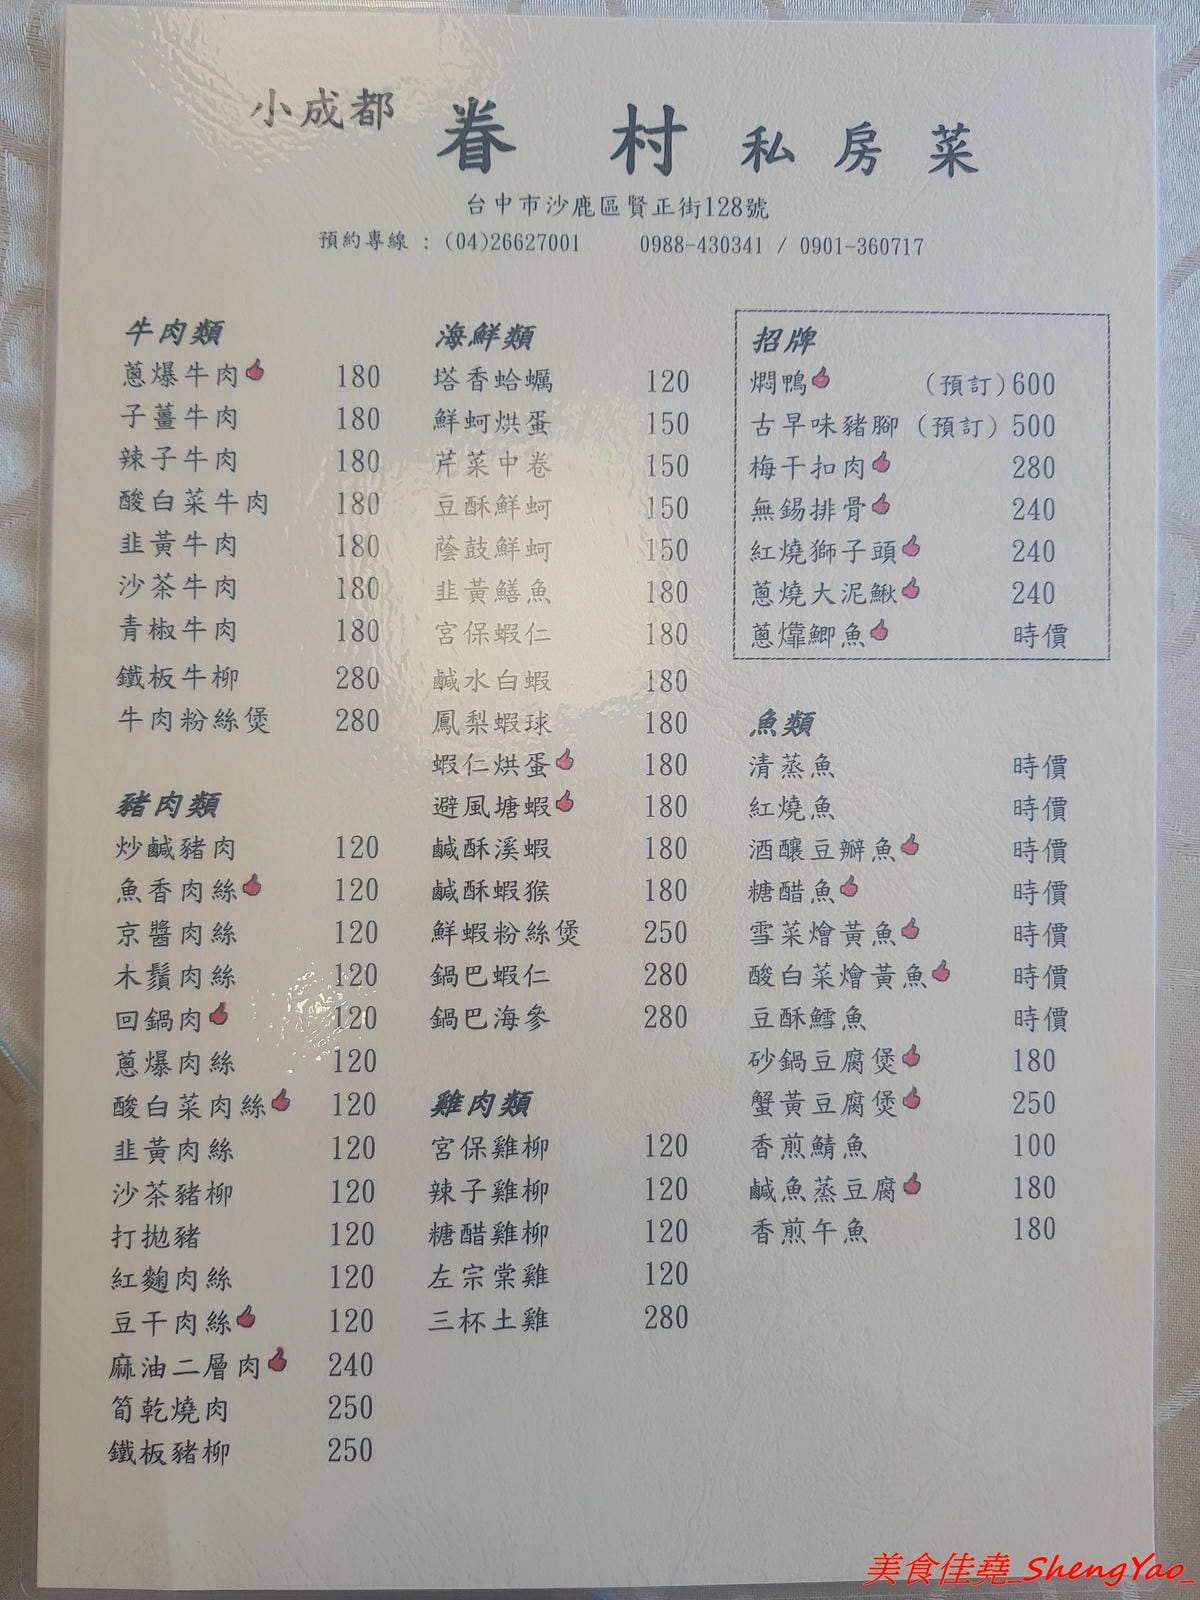 小成都 眷村 私房菜
台中市沙鹿區賢正街128號
預約專線 : (04)26627001 0988-430341 / 0901-360717
牛肉類
蔥爆牛肉 180
子薑牛肉 180
辣子牛肉 180
酸白菜牛肉 180
韭黃牛肉 180
沙茶牛肉 180
青椒牛肉 180
鐵板牛柳 280
牛肉粉絲煲 280
豬肉類
炒鹹豬肉 120
魚香肉絲 120
京醬肉絲 120
木鬚肉絲 120
回鍋肉 120
蔥爆肉絲 120
酸白菜肉絲 120
韭黃肉絲 120
沙茶豬柳 120
打拋豬 120
紅麴肉絲 120
豆干肉絲 120
麻油二層肉 240
筍乾燒肉 250
鐵板豬柳 250
海鮮類
塔香蛤蠣 120
鮮蚵烘蛋 150
芹菜中卷 150
豆酥鮮蚵 150
蔭鼓鮮蚵 150
韭黃鱔魚 180
宮保蝦仁 180
鹹水白蝦 180
鳳梨蝦球 180
蝦仁烘蛋 180
避風塘蝦 180
鹹酥溪蝦 180
鹹酥蝦猴 180
鮮蝦粉絲煲 250
鍋巴蝦仁 280
鍋巴海參 280
雞肉類
宮保雞柳 120
辣子雞柳 120
糖醋雞柳 120
左宗棠雞 120
三杯土雞 280
招牌
燜鴨 (預訂)600
古早味豬腳 (預訂) 500
梅干扣肉 280
無錫排骨 240
紅燒獅子頭 240
蔥燒大泥鰍 240
蔥㸆鯽魚 時價
魚類
清蒸魚 時價
紅燒魚 時價
酒釀豆瓣魚 時價
糖醋魚 時價
雪菜燴黃魚 時價
酸白菜燴黃魚 時價
豆酥鱈魚 時價
砂鍋豆腐煲 180
蟹黃豆腐煲 250
香煎鯖魚 100
鹹魚蒸豆腐 180
香煎午魚 180
美食佳堯_ShengYao_